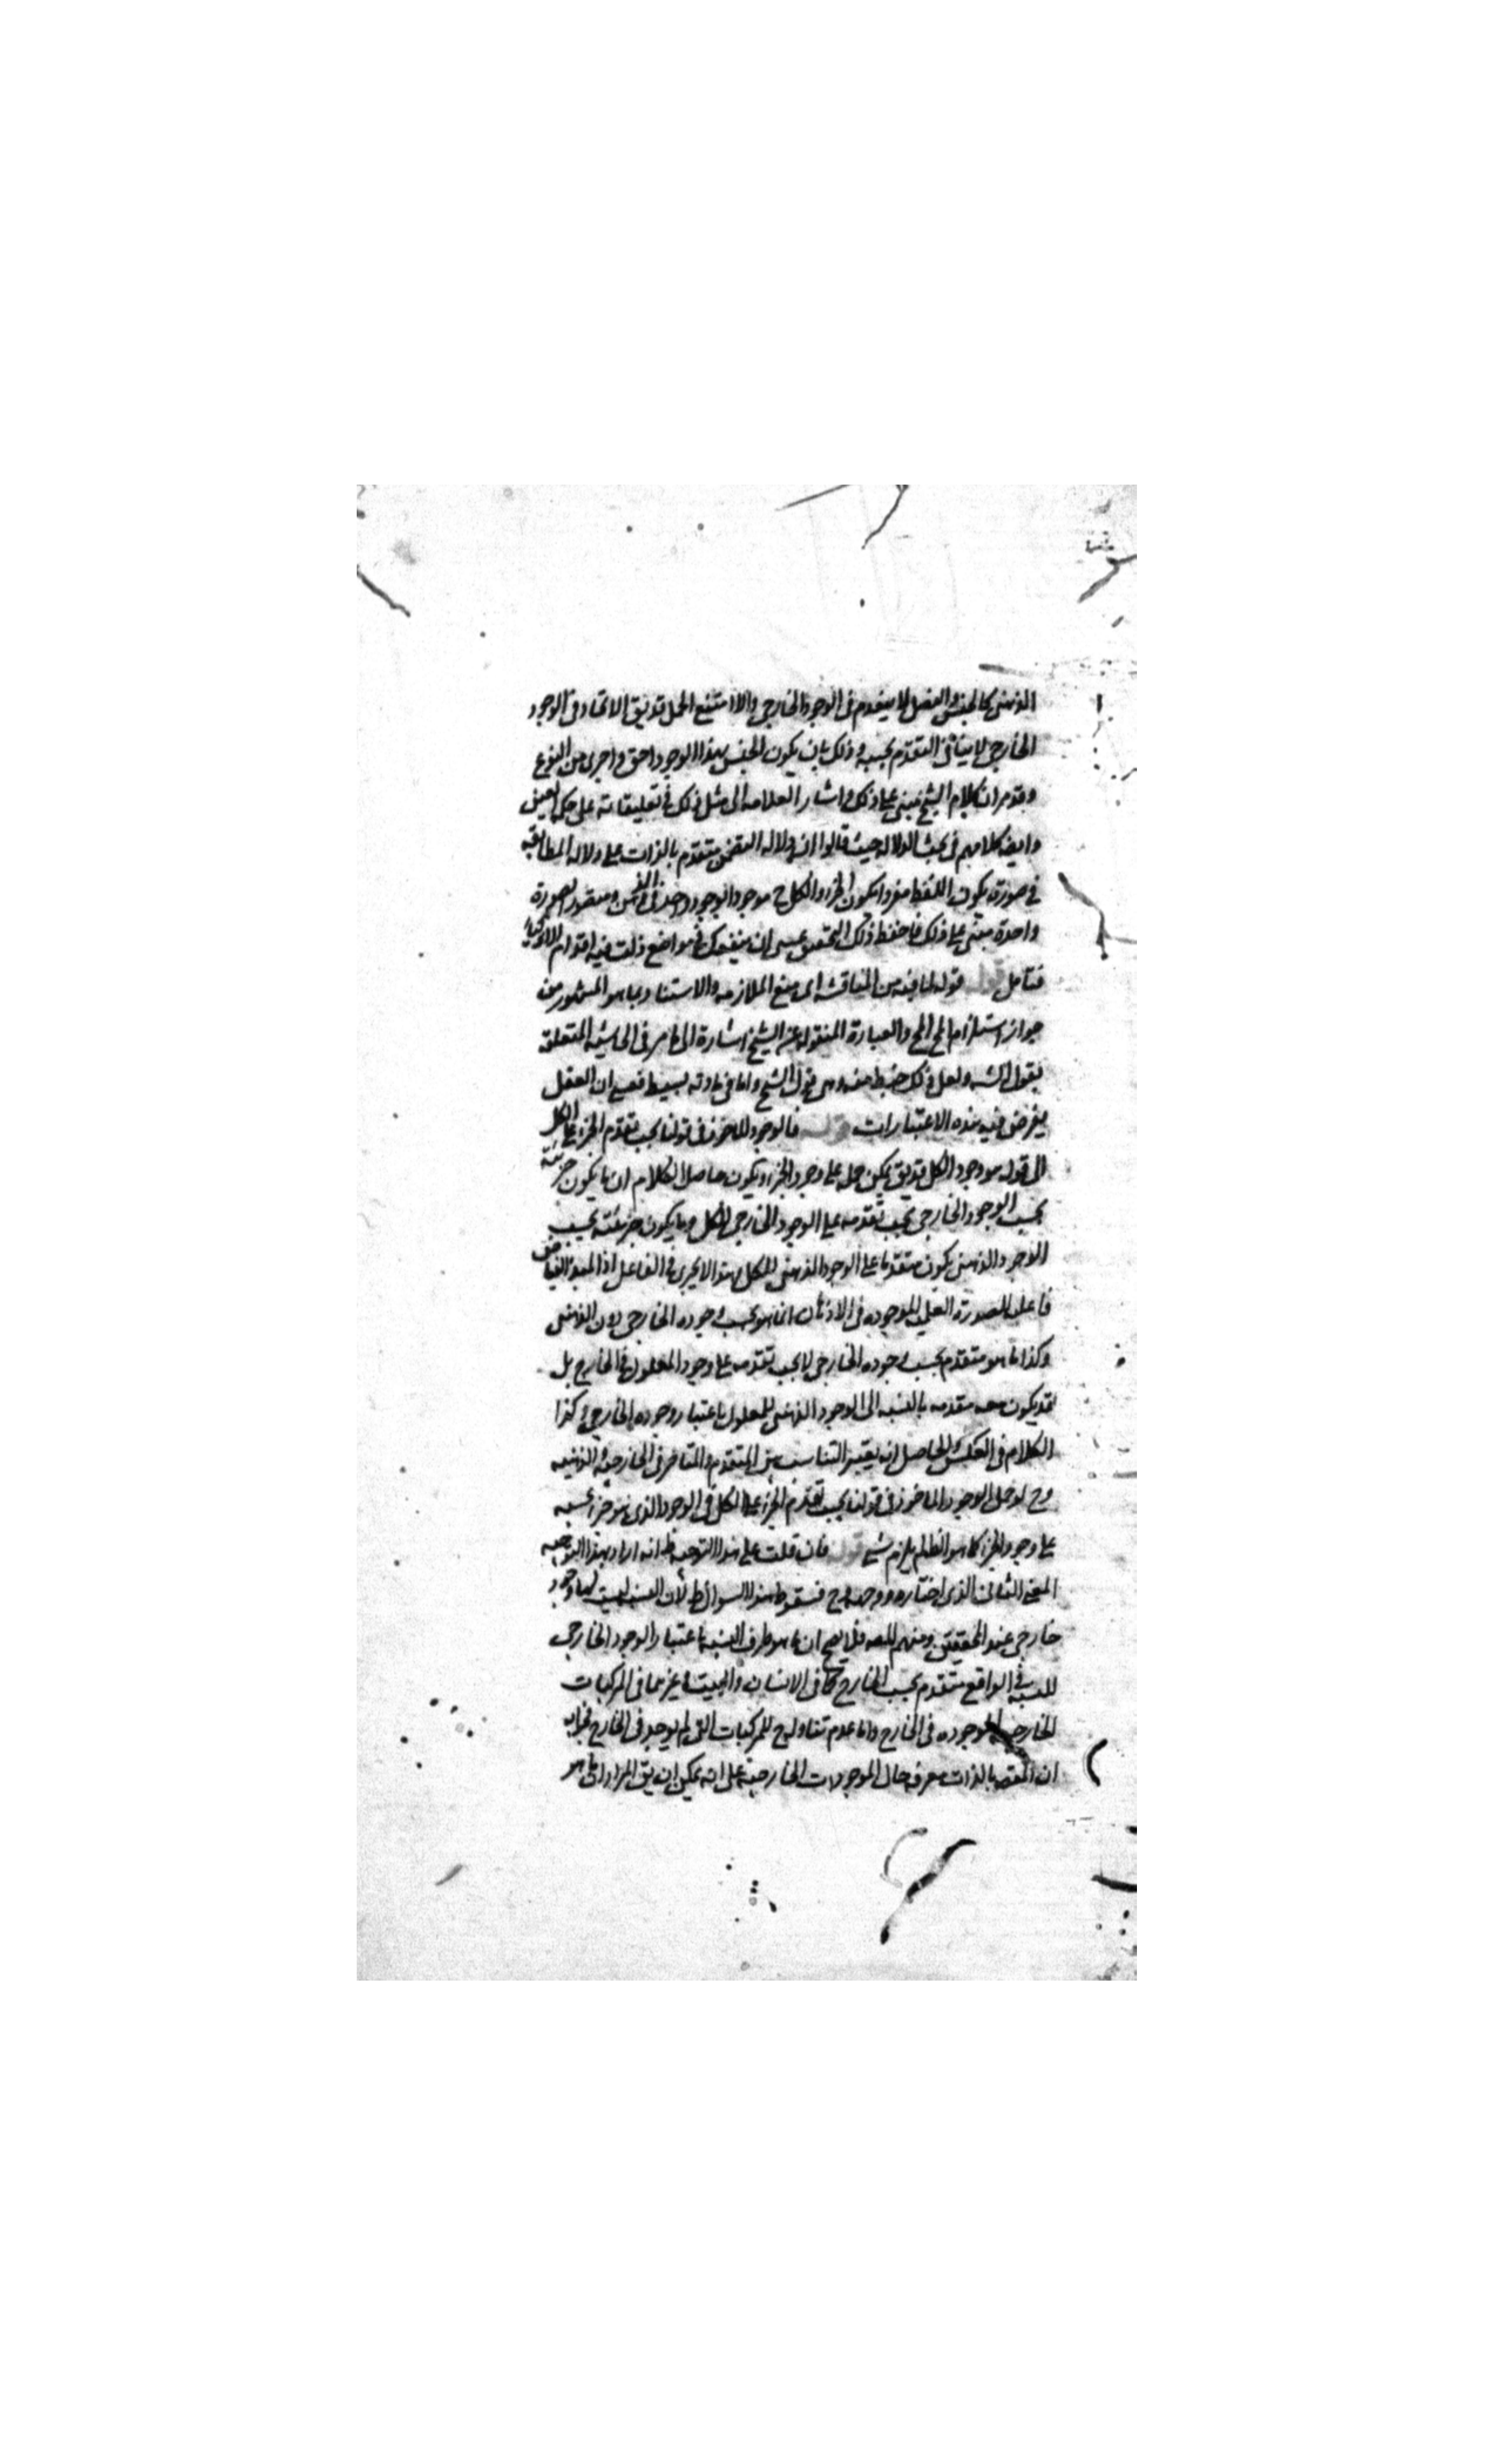 الذهنى كالجنس والفصل لا يتقدم فى الوجود الخارجى والا امتنع الحمل قديق الاتحاد فى الوجود
الخارجى لا ينافى التقدم بحسبه وذلك بان يكون الجنس بهذا الوجود احق واحرى من النوع
وقد مر ان كلام الشيخ مبنى على ذلك واشار العلامه الى مثل ذلك فى تعليقاته على حكمه العين
وايضا كلامهم فى بحث الدلاله حيث قالوا ان دلاله التضمن متقدم بالذات على دلاله المطابقه
فى صورة يكون اللفظ مفردا يكون الجزء والكل ح موجودا بوجود واحد فى الذهن ومتصور بصورة
واحدة مبنى على ذلك فاحفظ ذلك التحقيق عسى ان ينفعك فى مواضع زلت فيه اقدام الاذكياء
فتامل قوله قوله لما فيه من المناقشه اى منع الملازمه والاستناد بما هو المشهور من
جواز استلزام المح المح والعبارة المنقوله عن الشيخ اشارة الى ما مر فى الحاشيه المتعلقه
بقول الشه ولعل ذلك منه وهى قول الشيخ واما فى مادته بسيط فعسى ان العقل
يفرض فيه هذه الاعتبارات قوله فالوجود الماخوذ فى قولنا يجب تقدم الجزء على الكل
الى قوله هو وجود الكل قديق يمكن حمله على وجود الجزء ويكون حاصل الكلام ان ما يكون جزئيته
بحسب الوجود الخارجى يجب تقدمه على الوجود الخارجى للكل وما يكون جزئيته بحسب
الوجود الذهنى يكون متقدما على الوجود الذهنى للكل هذا لا يجرى فى الفاعل اذ المبدء الفياض
فاعل للصورة العقليه الموجوده فى الاذهان انما هو بحسب وجوده الخارجى دون الذهنى
وكذا ما هو متقدم بحسب وجوده الخارجى لا يجب تقدمه على وجود المعلول فى الخارج بل
قد يكون معه متقدمه بالنسبه الى الوجود الذهنى للمعلول باعتبار وجوده الخارجى وكذا
الكلام فى العكس والحاصل انه يعتبر التناسب بين المتقدم والمتاخر فى الخارجيه والذهنيه
وح لو حمل الوجود الماخوذ فى قولنا يجب تقدم الجزء على الكل فى الوجود الذى هو جزء بحسبه
على وجود الجزء كما هو الظ لم يلزم شئ قوله فان قلت على هذا التوجيه ظ انه اراد بهذا التوجيه
المعنى الثانى الذى اختاره ووجهه وح فسقوط هذا السوال ظ لان النسبه ليست لها وجود
خارجى عند المحققين ومنهم المصه فلا يصح ان ما هو طرف النسبه باعتبار الوجود الخارجى
للنسبه فى الواقع متقدم بحسب الخارج كما فى الانسان والبيت وغيرهما فى المركبات
الخارجيه الموجوده فى الخارج واما عدم تناوله ح للمركبات التى لم يوجد فى الخارج فجوابه
ان المقصه بالذات معرفه حال الموجودات الخارجيه على انه يمكن ان يق المراد ان ما هو